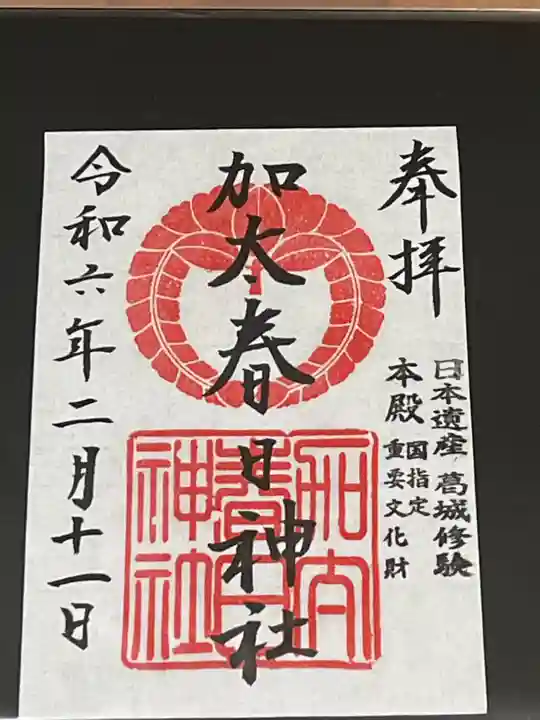 奉拝
日本遺産 葛城修験
本殿 国指定
重要文化財
加太春日神社
加太
春日
神社
令和六年二月十一日